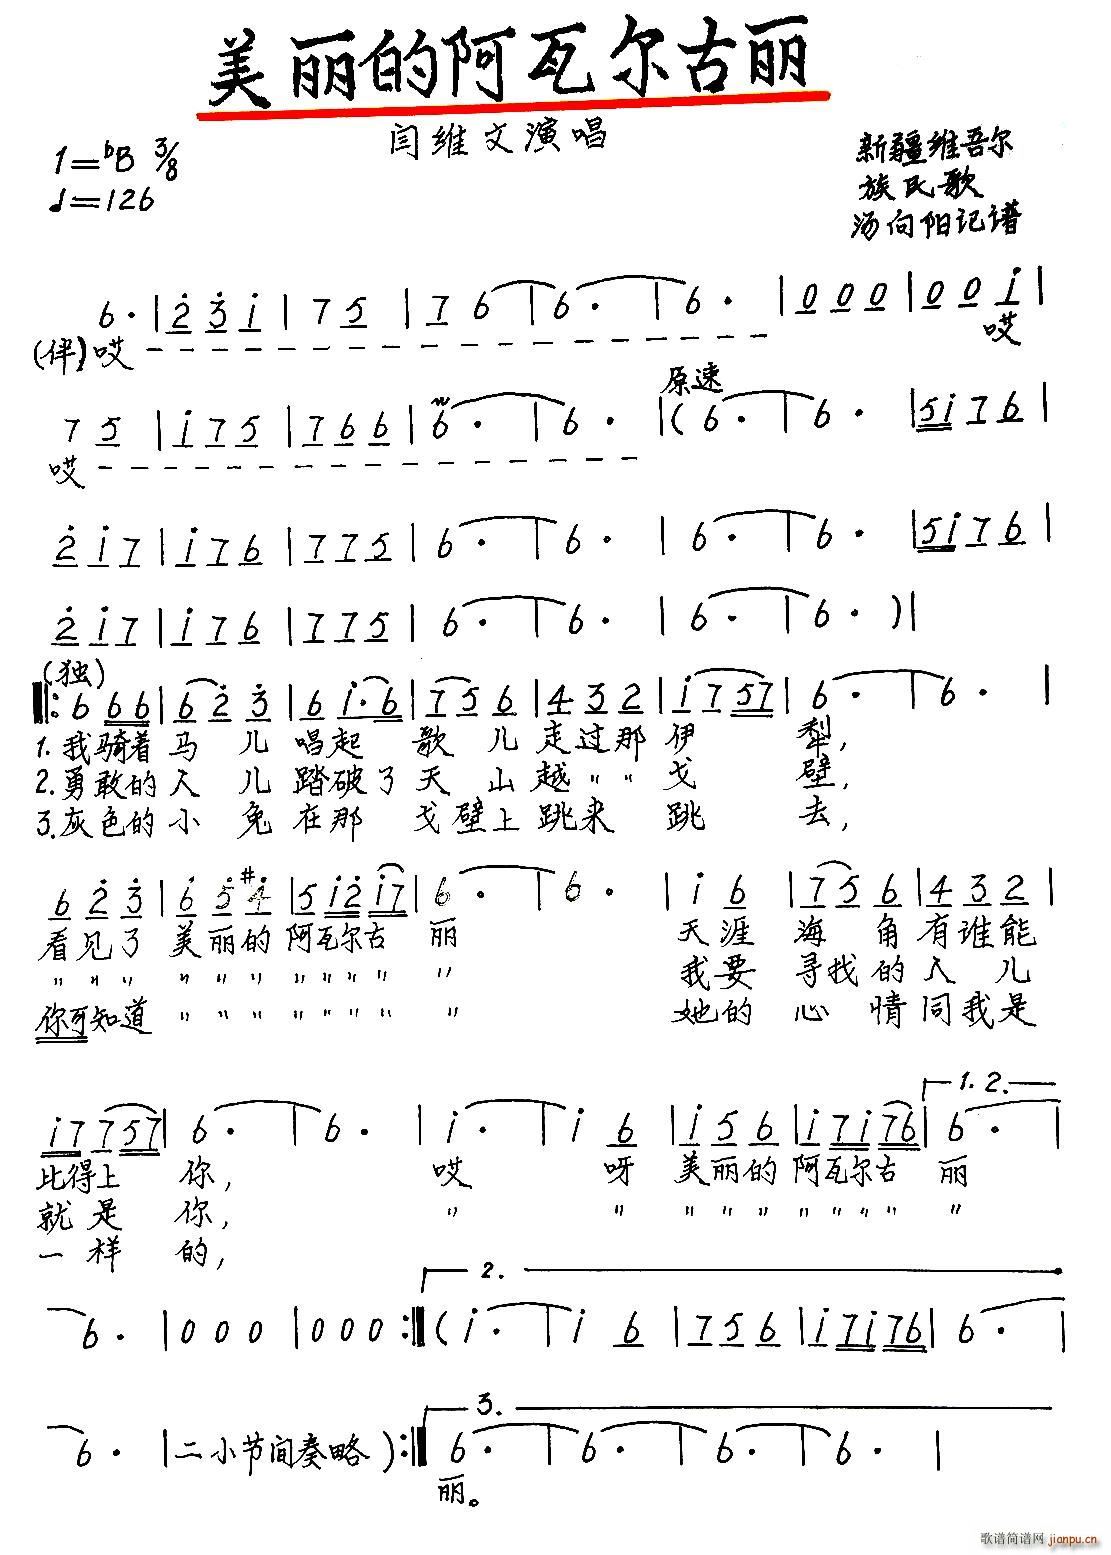 美丽的阿瓦尔古丽
闫维文演唱
1=♭B 3/8
♩=126
新疆维吾尔
族民歌
汤向阳记谱
6· | 2 3 i | 7 5 | 7 6 | 6· | 6· | 0 0 0 | 0 0 i |
(伴)哎 哎
原速
7 5 | i 7 5 | 7 6 6 | 6· | 6· | (6· | 6· | 5i 7 6 |
哎
2 i 7 | i 7 6 | 7 7 5 | 6· | 6· | 6· | 6· | 5i 7 6 |
2 i 7 | i 7 6 | 7 7 5 | 6· | 6· | 6· | 6· ) |
(独)
|: 6 66 | 6 2 3 | 6 i·6 | 7 5 6 | 4 3 2 | i 7 57 | 6· | 6· |
1.我骑着马儿唱起歌儿走过那伊犁,
2.勇敢的人儿踏破了天山越〃〃戈壁,
3.灰色的小兔在那戈壁上跳来跳去,
6 2 3 | 6 5 #4 | 5 i2 i7 | 6· | 6· | i 6 | 7 5 6 | 4 3 2 |
看见了美丽的阿瓦尔古丽 天涯海角有谁能
〃〃〃〃〃〃〃〃〃〃〃 我要寻找的人儿
你可知道〃〃〃〃〃〃〃〃 她的心情同我是
1.2.
i7 7 57 | 6· | 6· | i· | i 6 | i 5 6 | i7 i 76 | 6· |
比得上你, 哎呀美丽的阿瓦尔古丽
就是你, 〃〃〃〃〃〃〃〃〃〃
一样的,
2.
6· | 0 0 0 | 0 0 0 :| (i· | i 6 | 7 5 6 | i7 i 76 | 6· |
3.
6· | 二小节间奏略) :| 6· | 6· | 6· | 6· |
丽。
歌谱简谱网 jianpu.cn